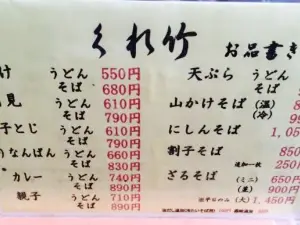 くれ竹 お品書き
け うどん 550円
そば 680円
見 うどん 610円
そば 790円
子とじ うどん 610円
そば 790円
うなんばん うどん 660円
そば 830円
カレー うどん 740円
そば 890円
親子 うどん 710円
そば 890円
天ぷら うどん
そば
山かけそば (温) 8
(冷) 9
にしんそば 1,05
割子そば 850
追加一枚 250
ざるそば (ミニ) 650円
(並) 900円
(大) 1,450円